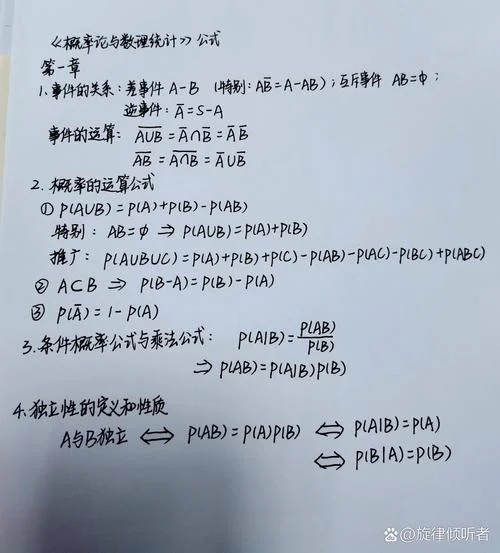 《概率论与数理统计》公式
第一章
1.事件的关系:差事件 A-B (特别:AB̅=A-AB);互斥事件 AB=Φ;
逆事件:A̅=S-A
事件的运算: \overline{A∪B}=\overline{A}∩\overline{B}=\overline{A}\,\overline{B}
\overline{AB}=\overline{A∩B}=\overline{A}∪\overline{B}
2.概率的运算公式
① P(A∪B)=P(A)+P(B)-P(AB)
特别: AB=Φ ⇒ P(A∪B)=P(A)+P(B)
推广: P(A∪B∪C)=P(A)+P(B)+P(C)-P(AB)-P(AC)-P(BC)+P(ABC)
② A⊂B ⇒ P(B-A)=P(B)-P(A)
③ P(A̅)=1-P(A)
3.条件概率公式与乘法公式: P(A|B)=P(AB)/P(B)
⇒ P(AB)=P(A|B)P(B)
4.独立性的定义和性质
A与B独立 ⟺ P(AB)=P(A)P(B) ⟺ P(A|B)=P(A)
⟺ P(B|A)=P(B)
旋律倾听者